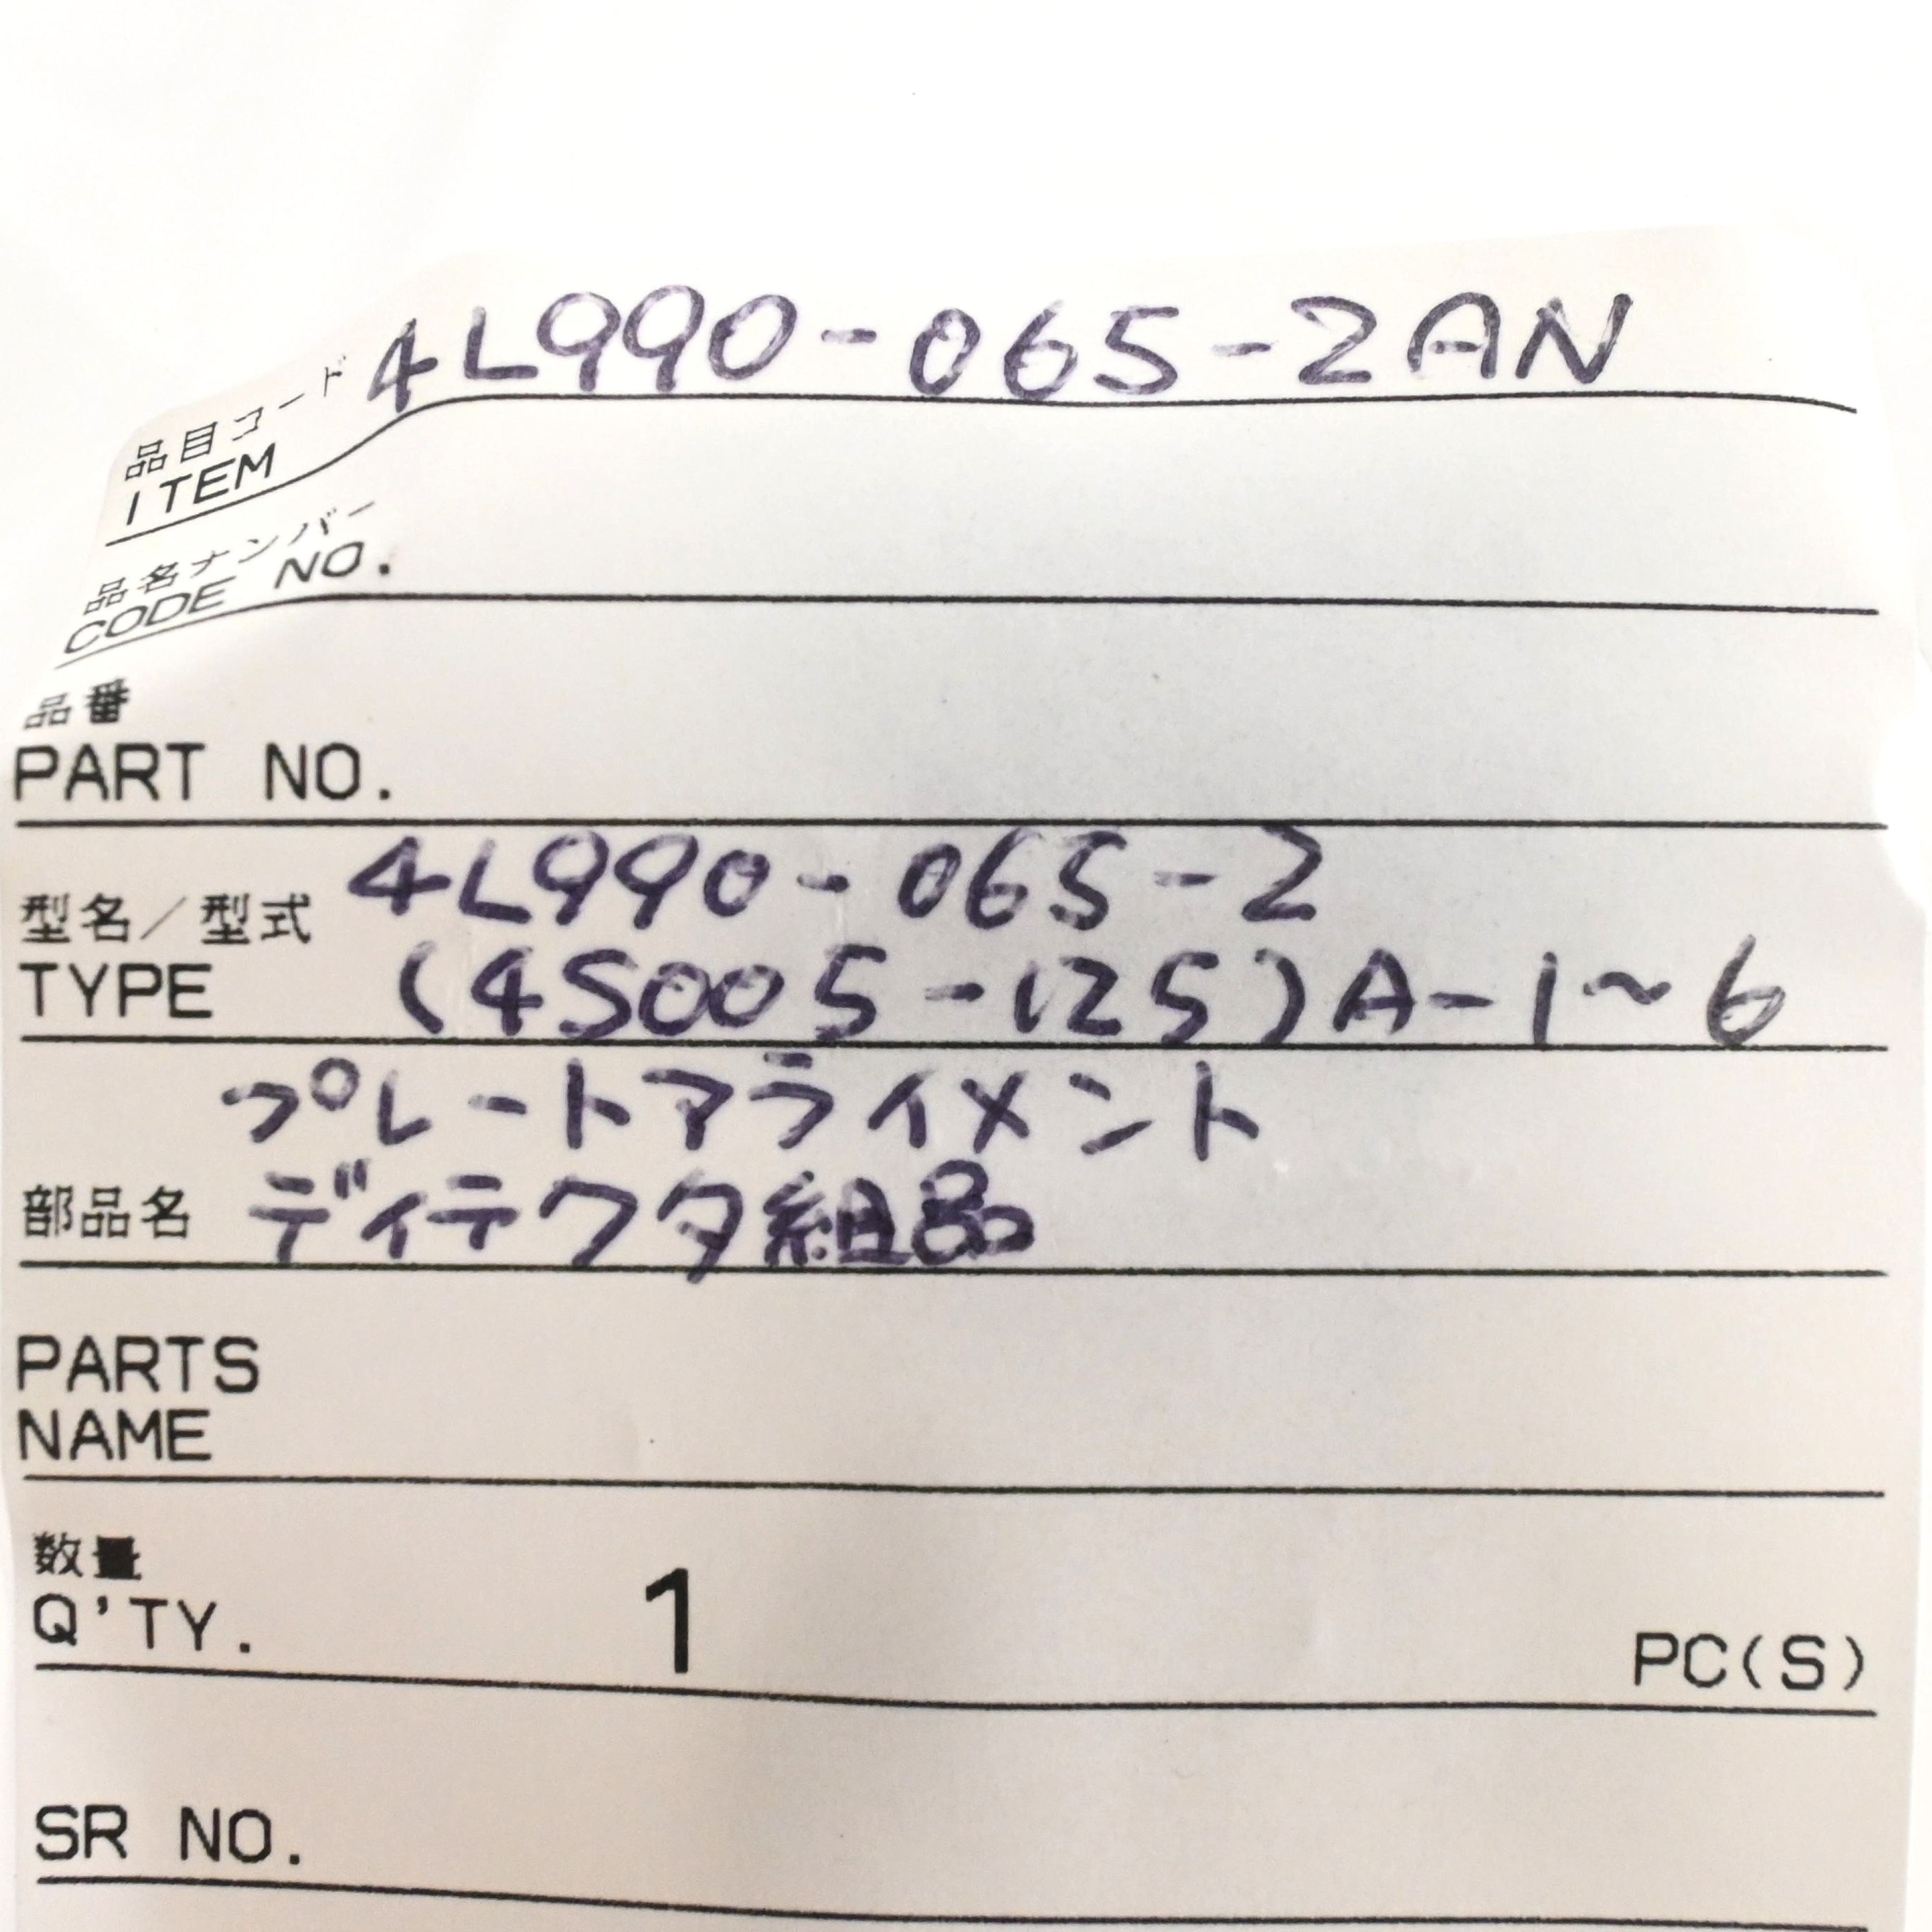 品目コード 4L990-065-2AN
ITEM
品名ナンバー
CODE NO.
品番
PART NO.
4L990-065-2
型名／型式
TYPE (4S005-125)A-1~6
プレートアライメント
部品名 ディテクタ組品
PARTS
NAME
数量
Q'TY. 1 PC(S)
SR NO.